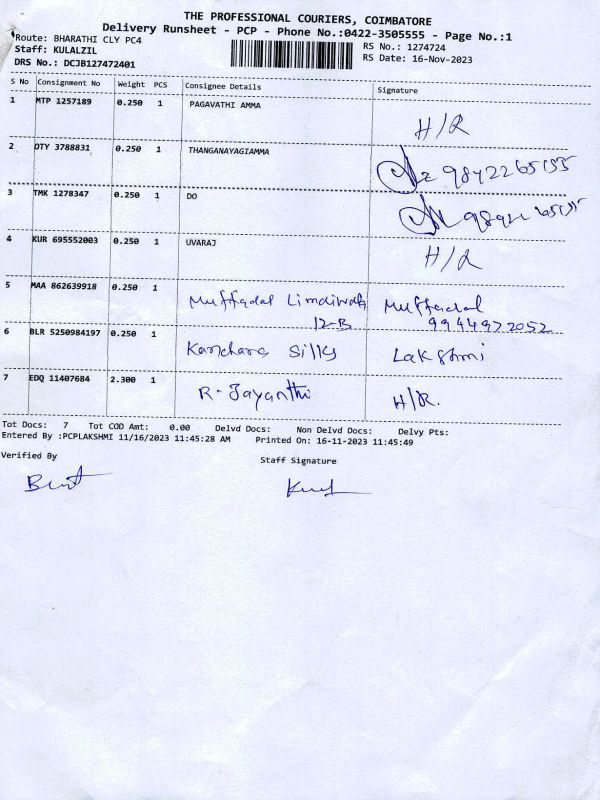 THE PROFESSIONAL COURIERS, COIMBATORE
Delivery Runsheet - PCP - Phone No.:0422-3505555 - Page No.:1
Route: BHARATHI CLY PC4
RS No.: 1274724
Staff: KULALZIL
RS Date: 16-Nov-2023
DRS No.: DCJB127472401
S No Consignment No Weight PCS Consignee Details Signature
1 MTP 1257189 0.250 1 PAGAVATHI AMMA H/R
2 OTY 3788831 0.250 1 THANGANAYAGIAMMA
3 TMK 1278347 0.250 1 DO
4 KUR 695552003 0.250 1 UVARAJ H/R
5 MAA 862639918 0.250 1 Muffadal Limdiwala Muffadal
12-B 9944972052
6 BLR 5250984197 0.250 1 Kanchana Silks Lakshmi
7 EDQ 11407684 2.300 1 R. Jayanthi H/R.
Tot Docs: 7 Tot COD Amt: 0.00 Delvd Docs: Non Delvd Docs: Delvy Pts:
Entered By :PCPLAKSHMI 11/16/2023 11:45:28 AM Printed On: 16-11-2023 11:45:49
Verified By Staff Signature